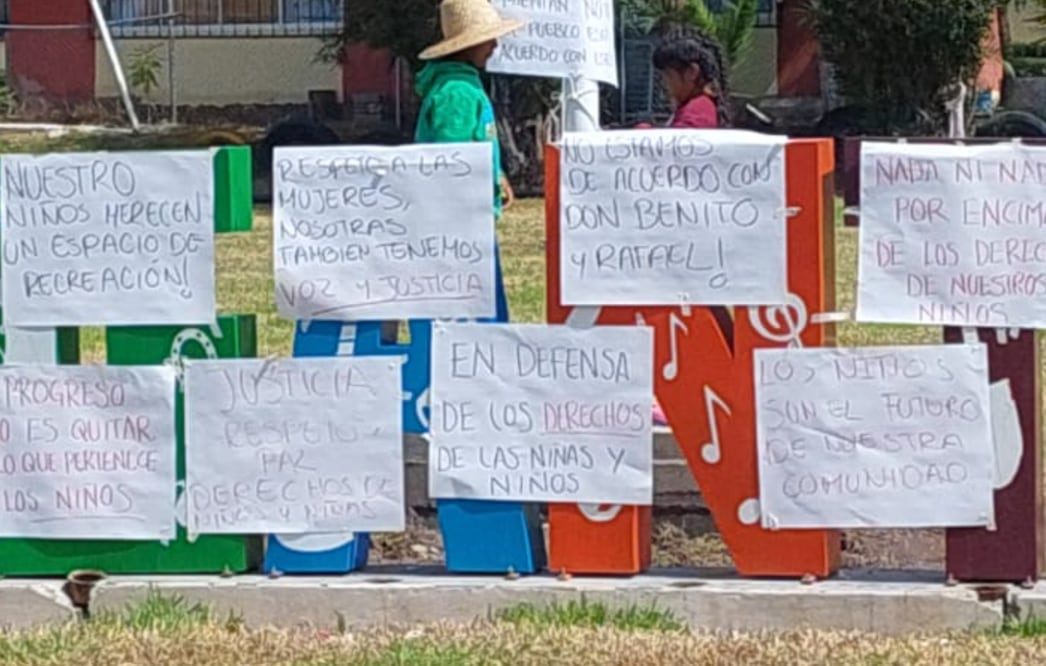 NUESTRO
NIÑOS MERECEN
UN ESPACIO DE
RECREACIÓN!
RESPETO A LAS
MUJERES,
NOSOTRAS
TAMBIEN TENEMOS
VOZ Y JUSTICIA
PUEBLO
ACUERDO CON
NO ESTAMOS
DE ACUERDO CON
DON BENITO
Y RAFAEL!
NADA NI NAD
POR ENCIMA
DE LOS DEREC
DE NUESTROS
NIÑOS
PROGRESO
O ES QUITAR
LO QUE PERTENECE
LOS NIÑOS
JUSTICIA
RESPETO,
PAZ
DERECHOS DE
NIÑOS Y NIÑAS
EN DEFENSA
DE LOS DERECHOS
DE LAS NIÑAS Y
NIÑOS
LOS NIÑOS
SON EL FUTURO
DE NUESTRA
COMUNIDAD